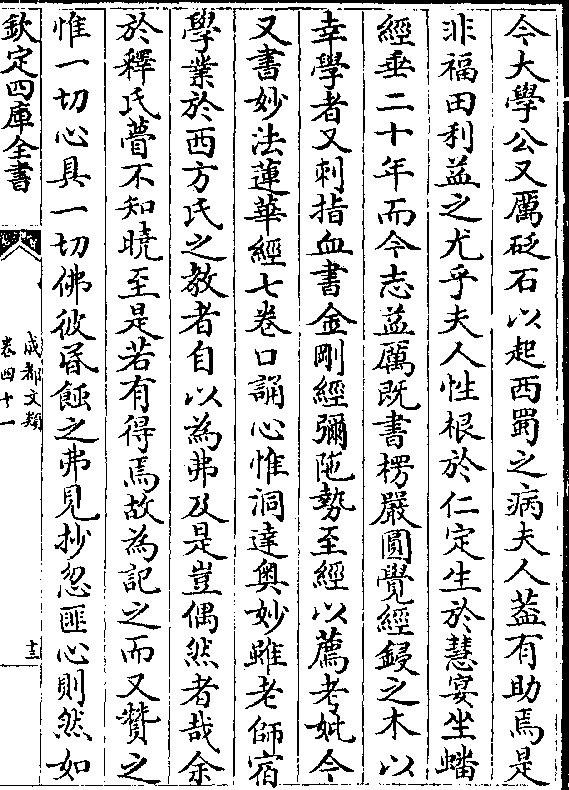 今大學公又厲砭石以起西蜀之病夫人蓋有助焉是
非福田利益之尤乎夫人性根於仁定生於慧宴坐蟠
經垂二十年而今志益厲既書楞嚴圓覺經鋟之木以
幸學者又刺指血書金剛經彌陁勢至經以薦考妣今
又書妙法蓮華經七卷口誦心惟洞達奥妙雖老師宿
學業於西方氏之教者自以為弗及是豈偶然者哉余
於釋氏瞢不知曉至是若有得焉故為記之而又贊之
惟一切心具一切佛彼昬蝕之弗見抄忽匪心則然如
欽定四庫全書
成都文類
卷四十一
十三